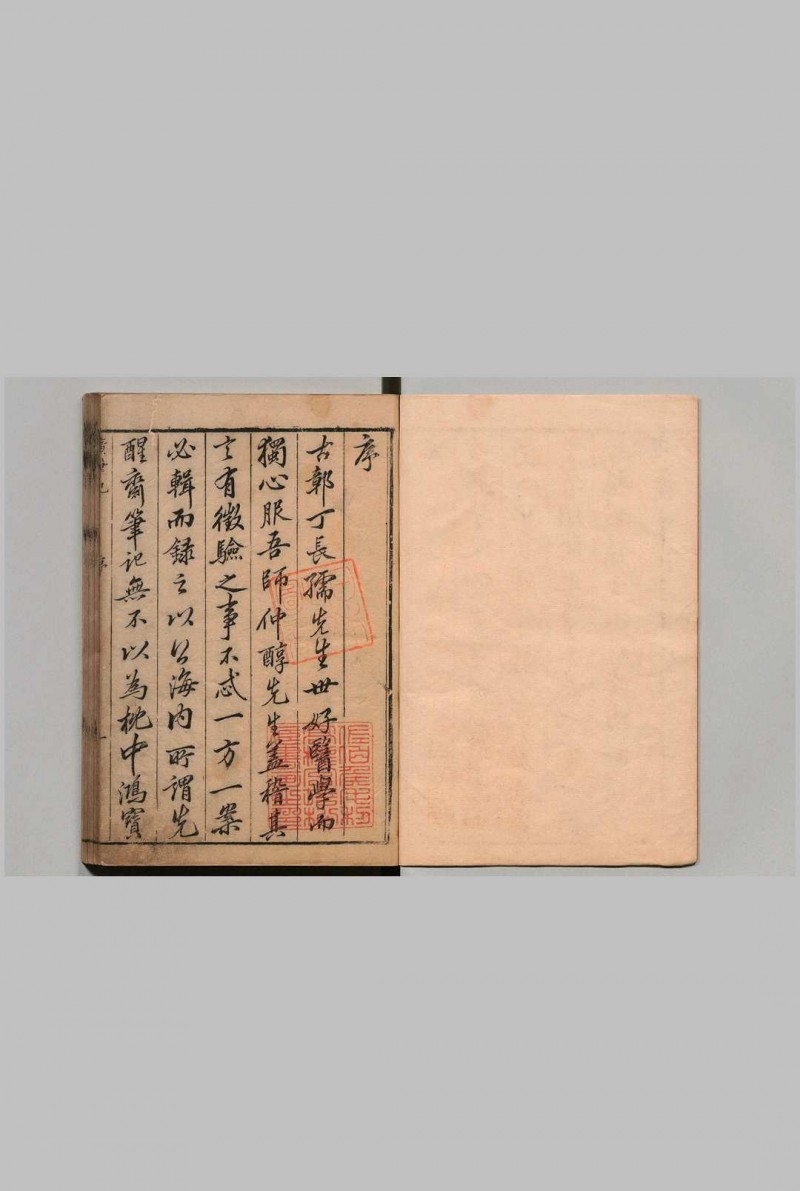 序
古鄣丁長孺先生世好醫學而
獨心服吾師仲醇先生蓋稽其
言有徵驗之事不忒一方一案
必輯而録之以公海内所謂先
醒齋筆記無不以為枕中鴻寶